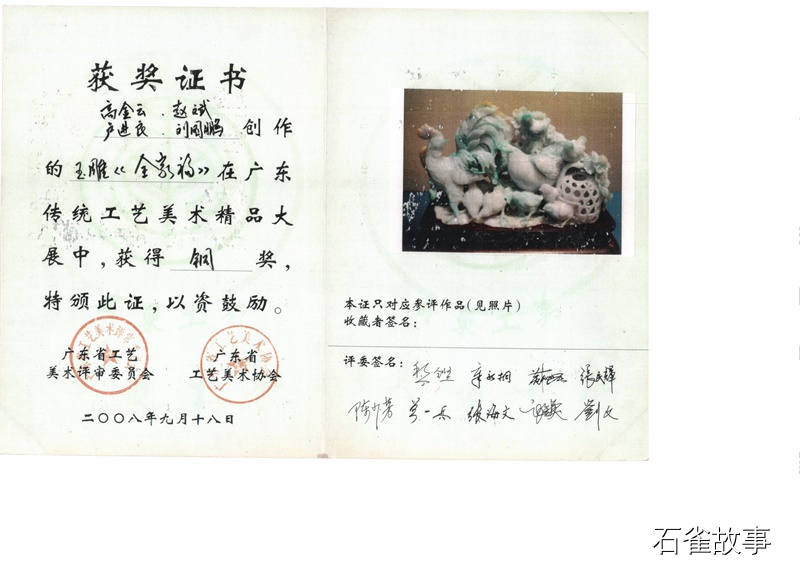 获奖证书
高金云 赵斌
卢进良 刘国鹏 创作
的 玉雕《全家福》在广东
传统工艺美术精品大
展中，获得 铜 奖，
特颁此证，以资鼓励。
广东省工艺
美术评审委员会
广东省
工艺美术协会
二〇〇八年九月十八日
本证只对应参评作品(见照片)
收藏者签名：
评委签名：
张海文
石雀故事